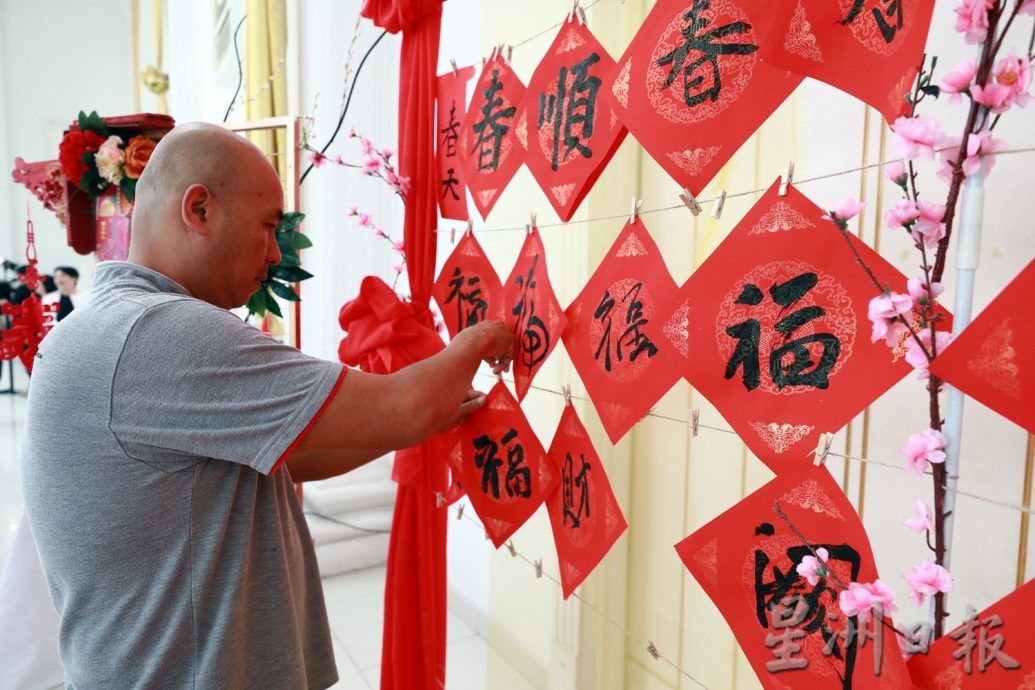 春天
春
順
春
福
福
福
福
福
财
星洲日报